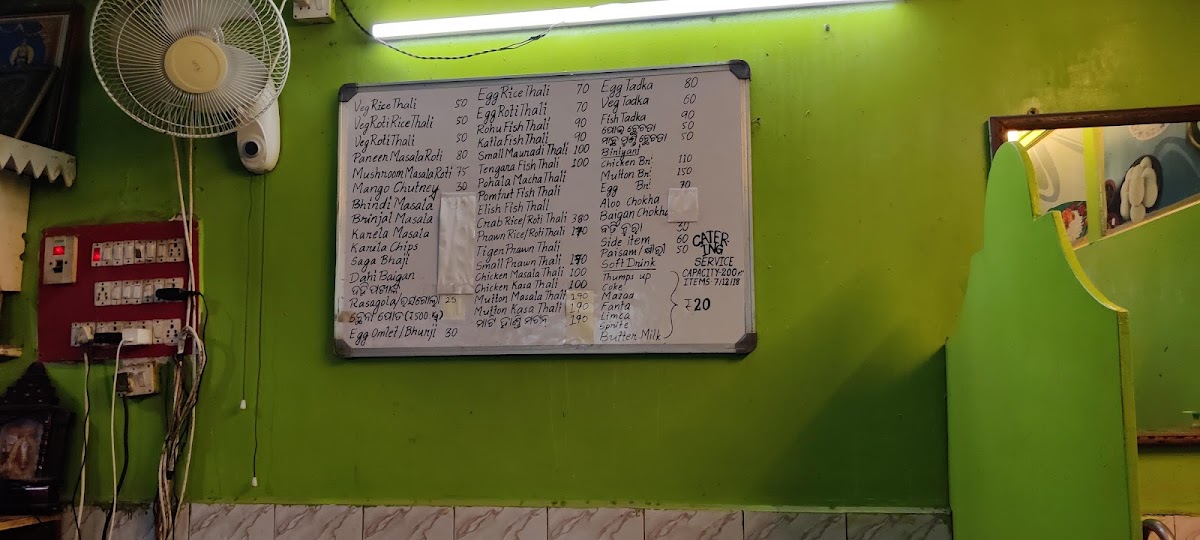 Veg Rice Thali 50
Veg Roti Rice Thali 50
Veg Roti Thali 50
Paneer Masala Roti 80
Mushroom Masala Roti 75
Mango Chutney 30
Bhindi Masala
Brinjal Masala
Karela Masala
Karela Chips
Saga Bhaji
Dahi Baigan
Rasagola/ରସଗୋଲା 25
ଛେନା ପୋଡ (500 g)
Egg Omlet/Bhurji 30
Egg Rice Thali 70
Egg Roti Thali 70
Rohu Fish Thali 90
Katla Fish Thali 90
Small Mauradi Thali 100
Tengara Fish Thali 100
Pohala Macha Thali
Pomfret Fish Thali
Elish Fish Thali
Crab Rice/Roti Thali 380
Prawn Rice/Roti Thali 170
Tiger Prawn Thali
Small Prawn Thali 170
Chicken Masala Thali 100
Chicken Kasa Thali 100
Mutton Masala Thali 190
Mutton Kasa Thali 190
ମାଟି ହାଣ୍ଡି ମଟନ 190
Egg Tadka 80
Veg Tadka 60
Fish Tadka 90
50
50
Biriyani
Chicken Bri 110
Mutton Bri 150
Egg Bri 70
Aloo Chokha
Baigan Chokha
ବଡି ଚୁରା 30
Side item 60
Paisam/ଖିରୀ 50
Soft Drink
Thumps up
Coke
Mazaa
Fanta
Limca
Sprite
Butter Milk
₹20
CATER-
ING
SERVICE
CAPACITY-200
ITEMS-7/12/18